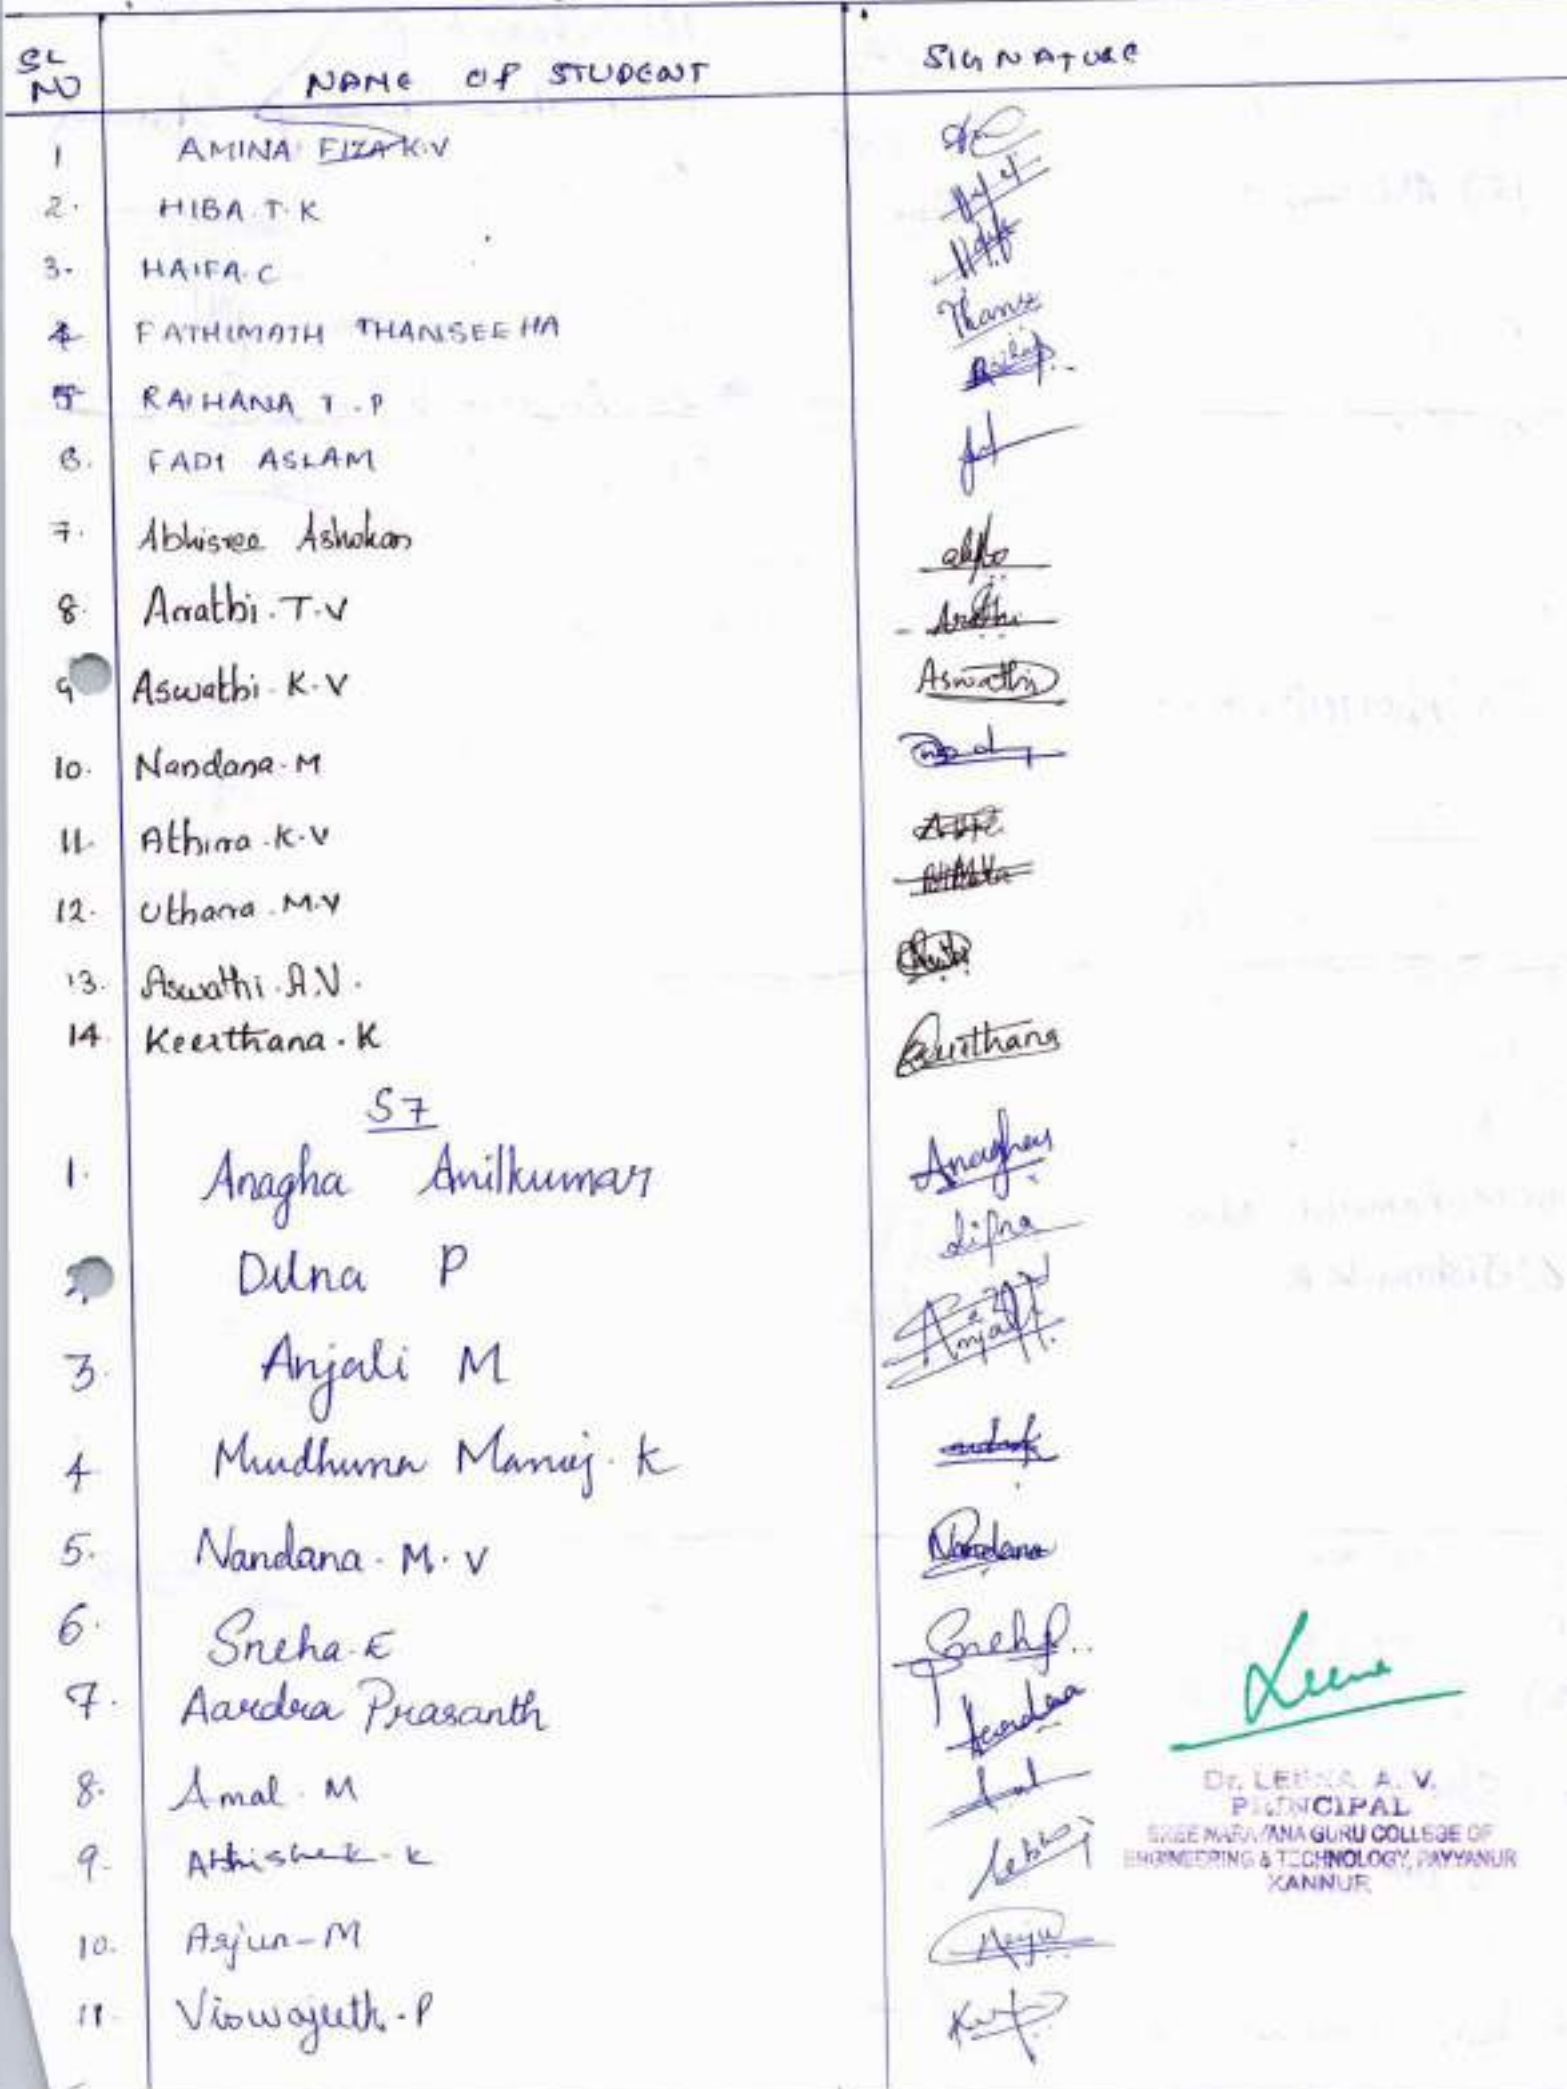 SL NO NAME OF STUDENT SIGNATURE
1 AMINA FIZA K.V
2. HIBA T.K
3. HAIFA C
4 FATHIMATH THANSEEHA Thanse
5 RAIHANA T.P
6. FADI ASLAM
7. Abhisree Ashokan
8. Arrathi.T.V Arathi
9 Aswathi.K.V Aswathi
10. Nandana.M
11. Athira.K.V
12. Uthara.M.V
13. Aswathi.A.V.
14. Keerthana.K Keerthana
S7
1. Anagha Anilkumar Anagha
2. Dilna P
3. Anjali M Anjali
4 Manoj.K
5. Nandana.M.V Nandana
6. Sneha.E Sneha
7. Aardra Prasanth Aardraa
8. Amal.M
9. Abhishek.K
10. Arjun-M Arju
11. Viswajith.P
Leena
Dr. LEENA A. V.
PRINCIPAL
SREE NARAYANA GURU COLLEGE OF
ENGINEERING & TECHNOLOGY, PAYYANUR
KANNUR